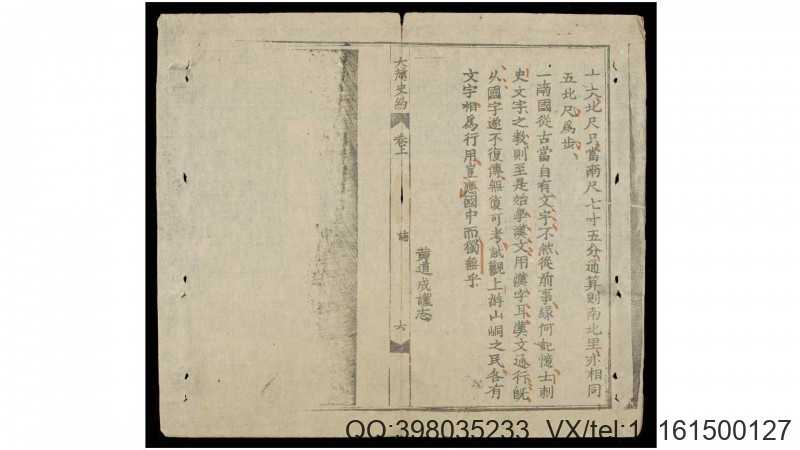 十六北尺只當兩尺七寸五分通算則南北里亦相同
五北尺爲步
一南國從古當自有文字不然從前事緣何記憶士刺
史文字之教則至是始學漢文用漢字耳漢文通行旣
久國字遂不復傳無復可考試觀上游山峒之民各有
文字相爲行用豈應國中而獨無乎
黃道成謹志
大南史約
卷上
六
QQ:398035233 VX/tel:1 161500127